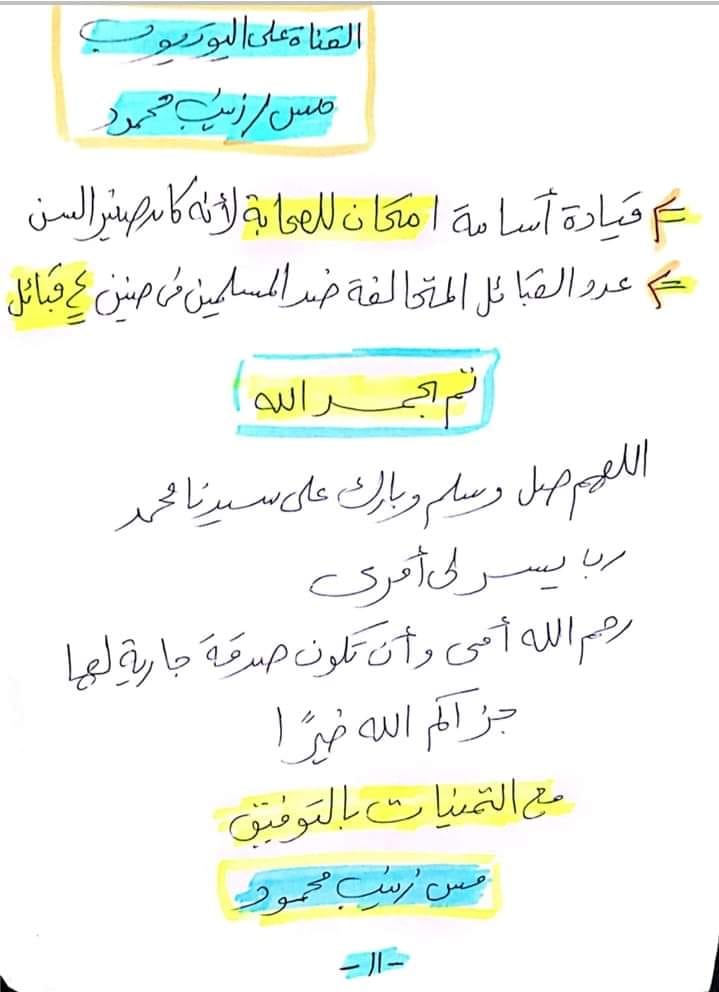 القناة على اليوتيوب
مس/ زينب محمود
قيادة أسامة امتحان للصحابة لأنه كان صغير السن
عدد القبائل المتحالفة ضد المسلمين فى حنين ٤ قبائل
تم بحمد الله
اللهم صل وسلم وبارك على سيدنا محمد
رب يسر لى أمرى
رحم الله أمى وأن تكون صدقة جارية لها
جزاكم الله خيرًا
مع التمنيات بالتوفيق
مس زينب محمود
-١١-